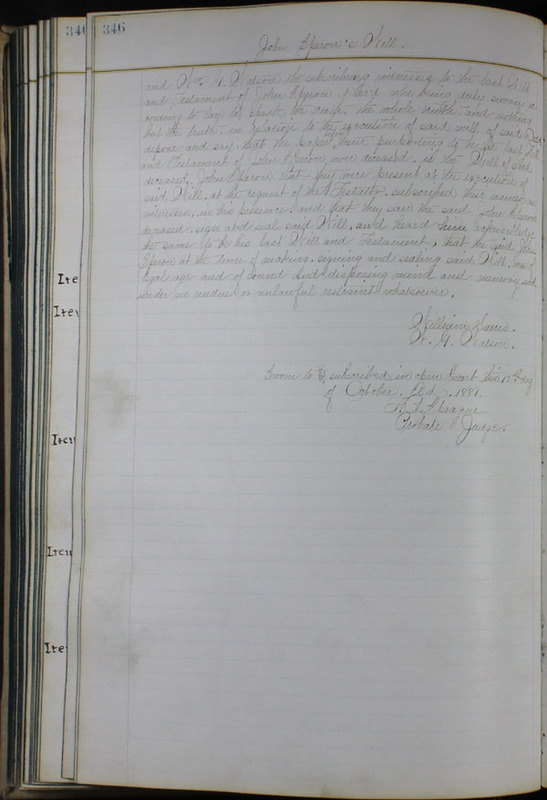 346
346
John Speron's Will.
and Wm. H. Watson the subscribing witnesses to the last Will
and Testament of John Speron, who being duly sworn
to speak the truth, the whole truth and nothing
but the truth, in relation to the execution of said will of said
depose and say that the paper purporting to be the last Will
and Testament of John Speron now deceased, is the Will of said
deceased, John Speron that they were present at the execution of
said Will, at the request of the Testator, subscribed their names as
witnesses, in his presence, and that they saw the said John Speron
deceased sign and seal said Will, and heard him acknowledge
the same to be his last Will and Testament, that the said John
Speron at the time of making, signing and sealing said Will, was of
legal age and of sound and disposing mind and memory and
under no undue or unlawful restraint whatsoever.
William Harris.
W. H. Watson.
Sworn to & subscribed in open Court this 12th day
of October A.D. 1881.
F. D. Sprague
Probate Judge.
Ite
Ite
Item
Item
Ite